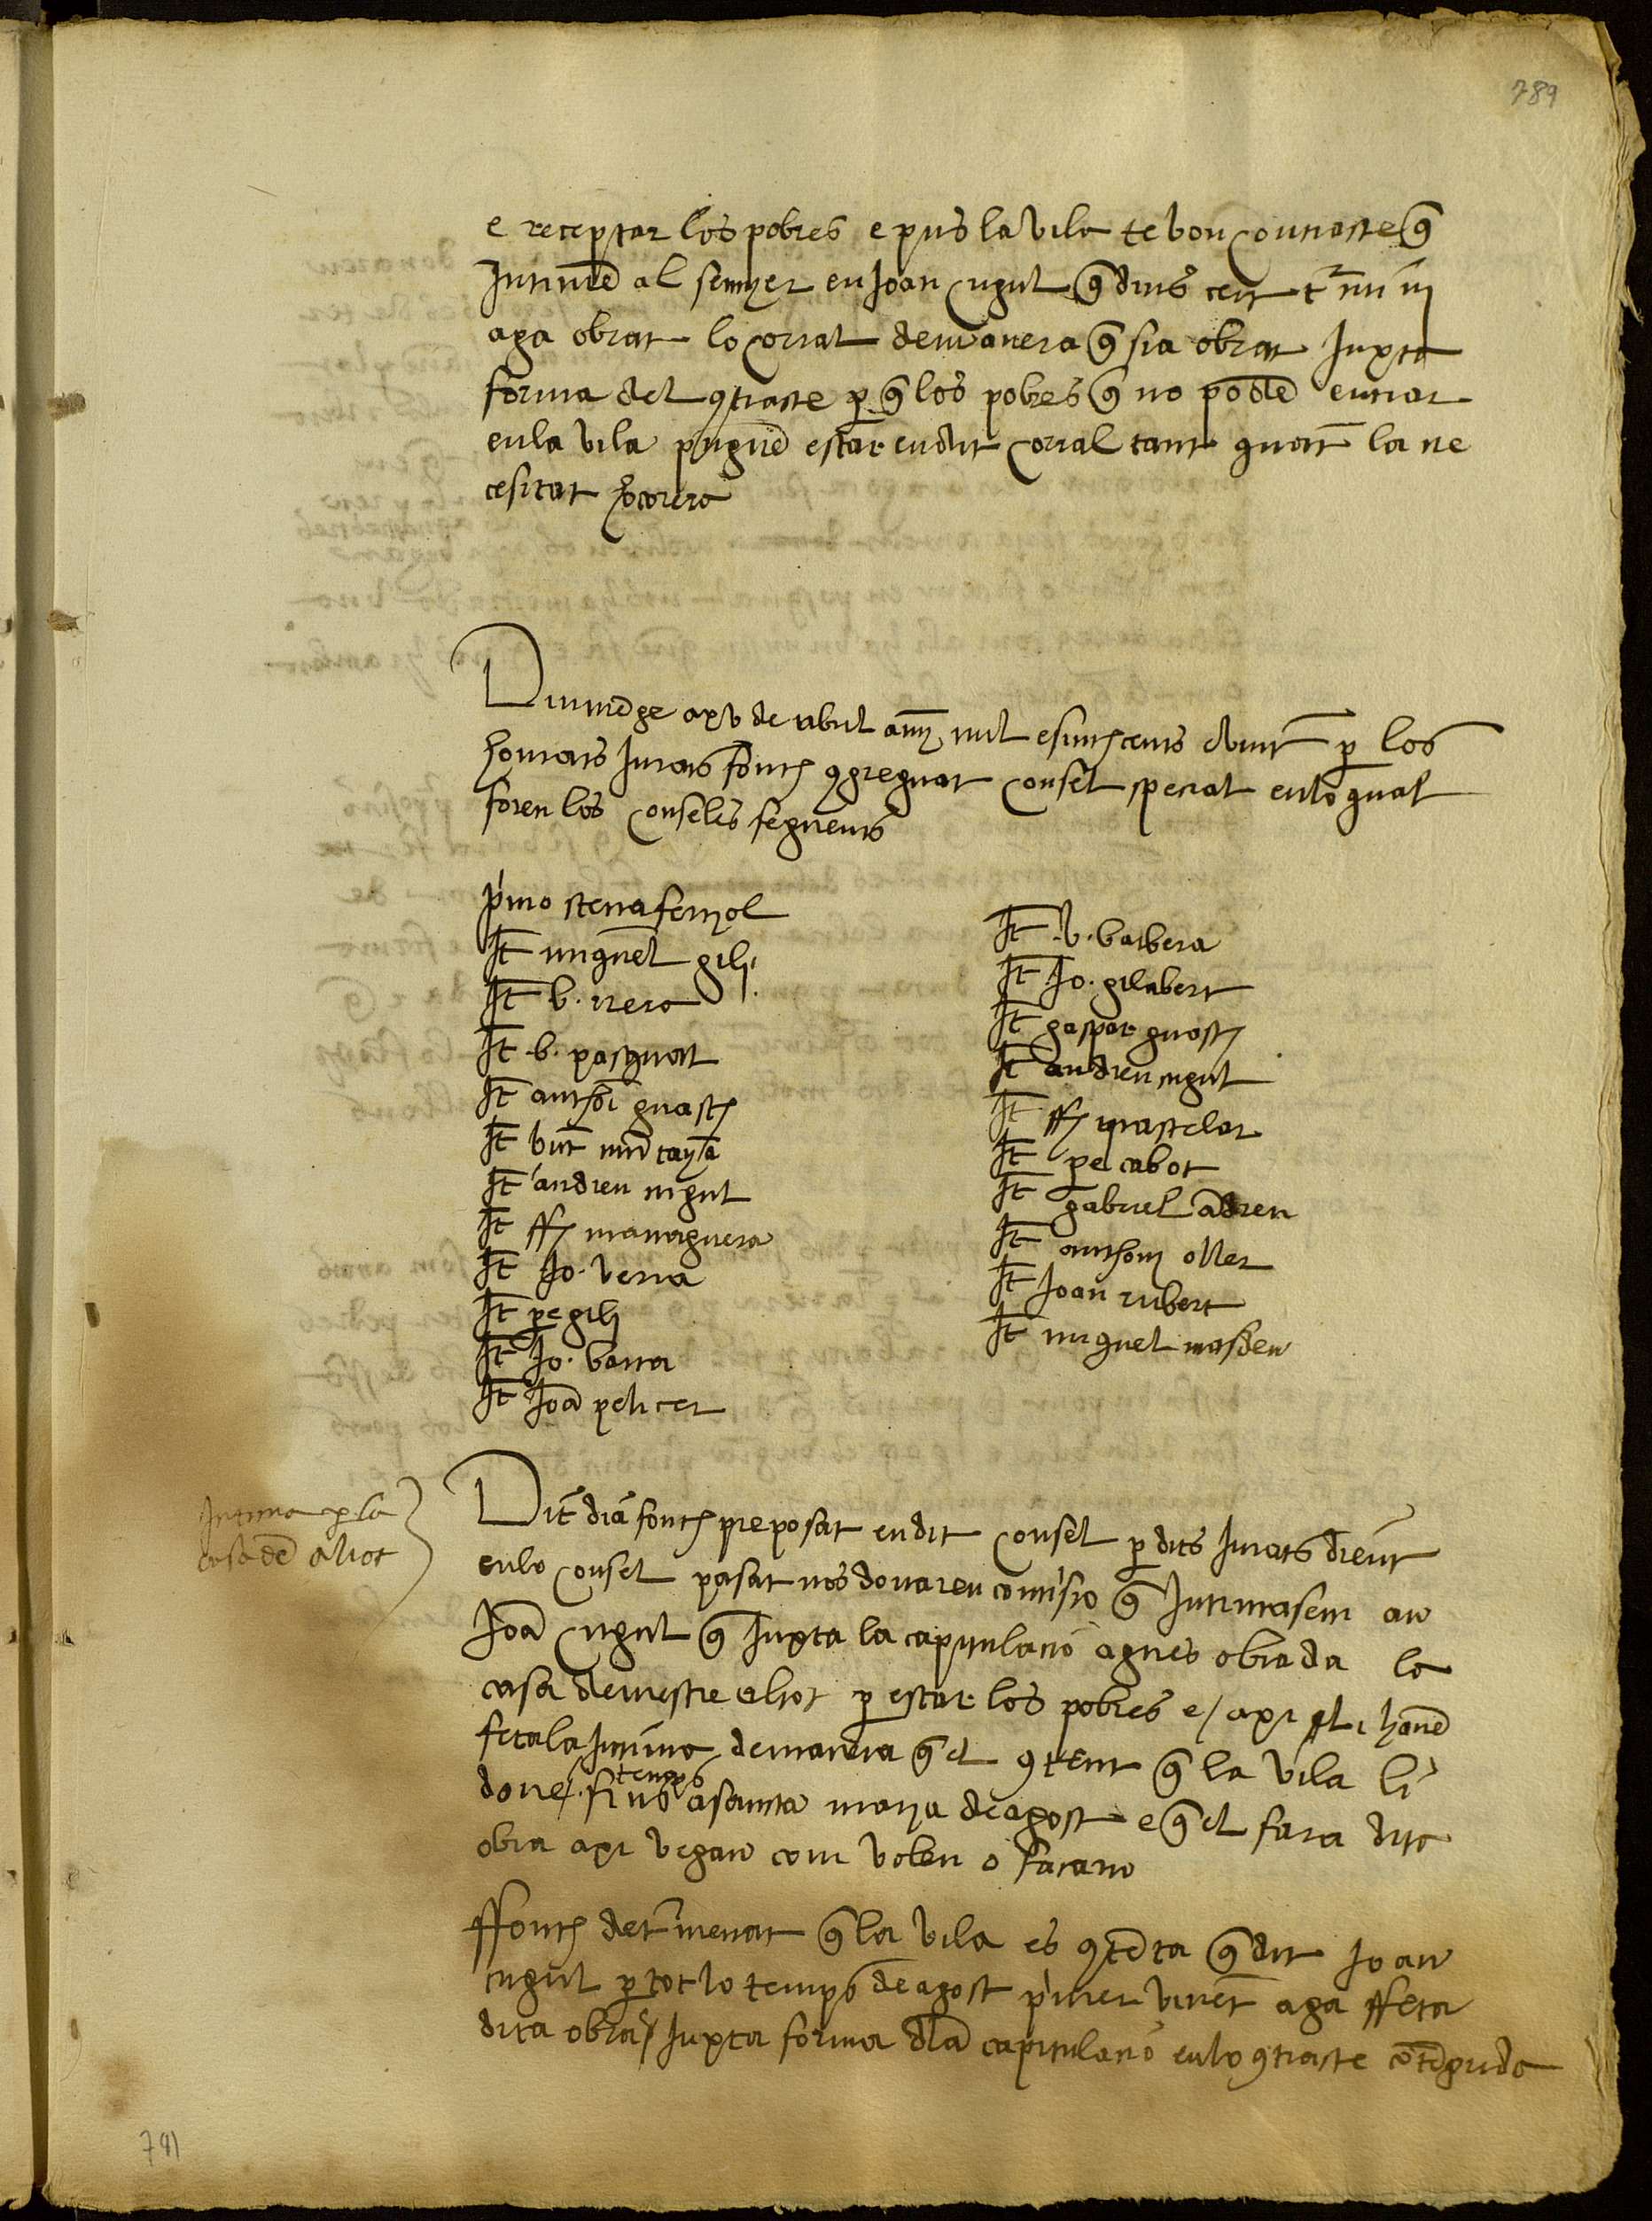 789
e receptar los pobres e pus la vila te bon contracte q̃
Intimẽ al senyer en Joan cugul q̃ dins cert t̃rmini
aga obrat lo corral de manera q̃ sia obrat Juxta
forma del 9tracte p̲ q̃ los pobres q̃ no podẽ entrar
en la vila puguẽ estar en dit corral tant quãt la ne
cesitat ho corera
Diumẽge a xv de abril any mil e sinch cents vint p̲ los
honrats Jurats fonch 9greguat consel specal en lo qual
foren los conseles seguents
p̃mo steva feryol
It̃ miguel gili
It̃ b. riera
It̃ b. pasqual
It̃ anthoi guasch
It̃ vint mũtayã
It̃ andreu cugul
It̃ ffᶜ managuera
It̃ Jo. verra
It̃ pe gili
It̃ Jo. barra
It̃ Joã pelicer
It̃ b. barbera
It̃ Jo. gilabert
It̃ gaspar guasch
It̃ andreu cugul
It̃ ffᶜ mastelar
It̃ pe cabot
It̃ gabriel ãdreu
It̃ anthoni oller
It̃ Joan rubert
It̃ miguel masdeu
Intima p̲ la
casa dẽ aliot
Dit dia fonch preposat en dit consel p̲ dits Jurats dient
en lo consel pasat nos donareu comisio q̃ Intimasem an
Joã cugul q̃ Juxta la capitulacio agues obrada la
casa de mestre aliot p̲ estar los pobres e axi li hauẽ
feta la Intima de manera q̃ el 9tent q̃ la vila li
done temps fins a sancta maria de agost e q̃ el fara dita
obra axi vegau com volen o facam
ffonch det̃menat q̃ la vila es 9tẽta q̃ dit Joan
cugul p̲ tot lo temps de agost p̃mer vinẽt aga ffeta
dita obra Juxta forma dla capitulacio en lo 9tracte cõtẽguda
791